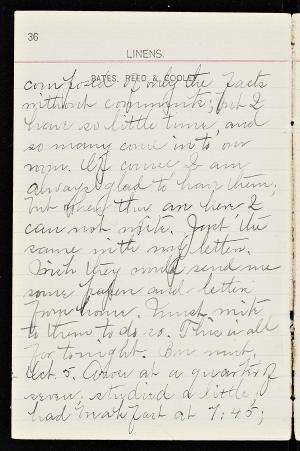 36
LINENS.
BATES, REED & COOLEY
composed of only the facts
without comments; but I
have so little time, and
so many come in to our
room. Of course I am
always glad to have them,
but when they are here I
can not write. Just the
same with my letters.
Wish they would send me
some paper and letter
from home. Must write
to them to do so. This is all
for tonight. Bon nuit.
Oct. 5. Arose at a quarter of
seven, studied a little,
had breakfast at 7:45;